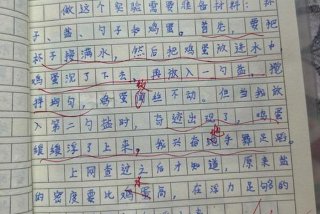 做这个实验需要准备材料：杯
子、盐、勺子和鸡蛋。首先，要把
杯子接满水，然后把鸡蛋放进水中
鸡蛋沉了下去，再放入一勺盐，搅
拌均匀，鸡蛋丝丝不动。但当我放
入第二勺盐时，奇迹出现了，鸡蛋
缓缓浮了上来，我兴奋地手舞足蹈。
上网查过之后才知道，原来盐
的密度要比鸡蛋高，在浮力足够的